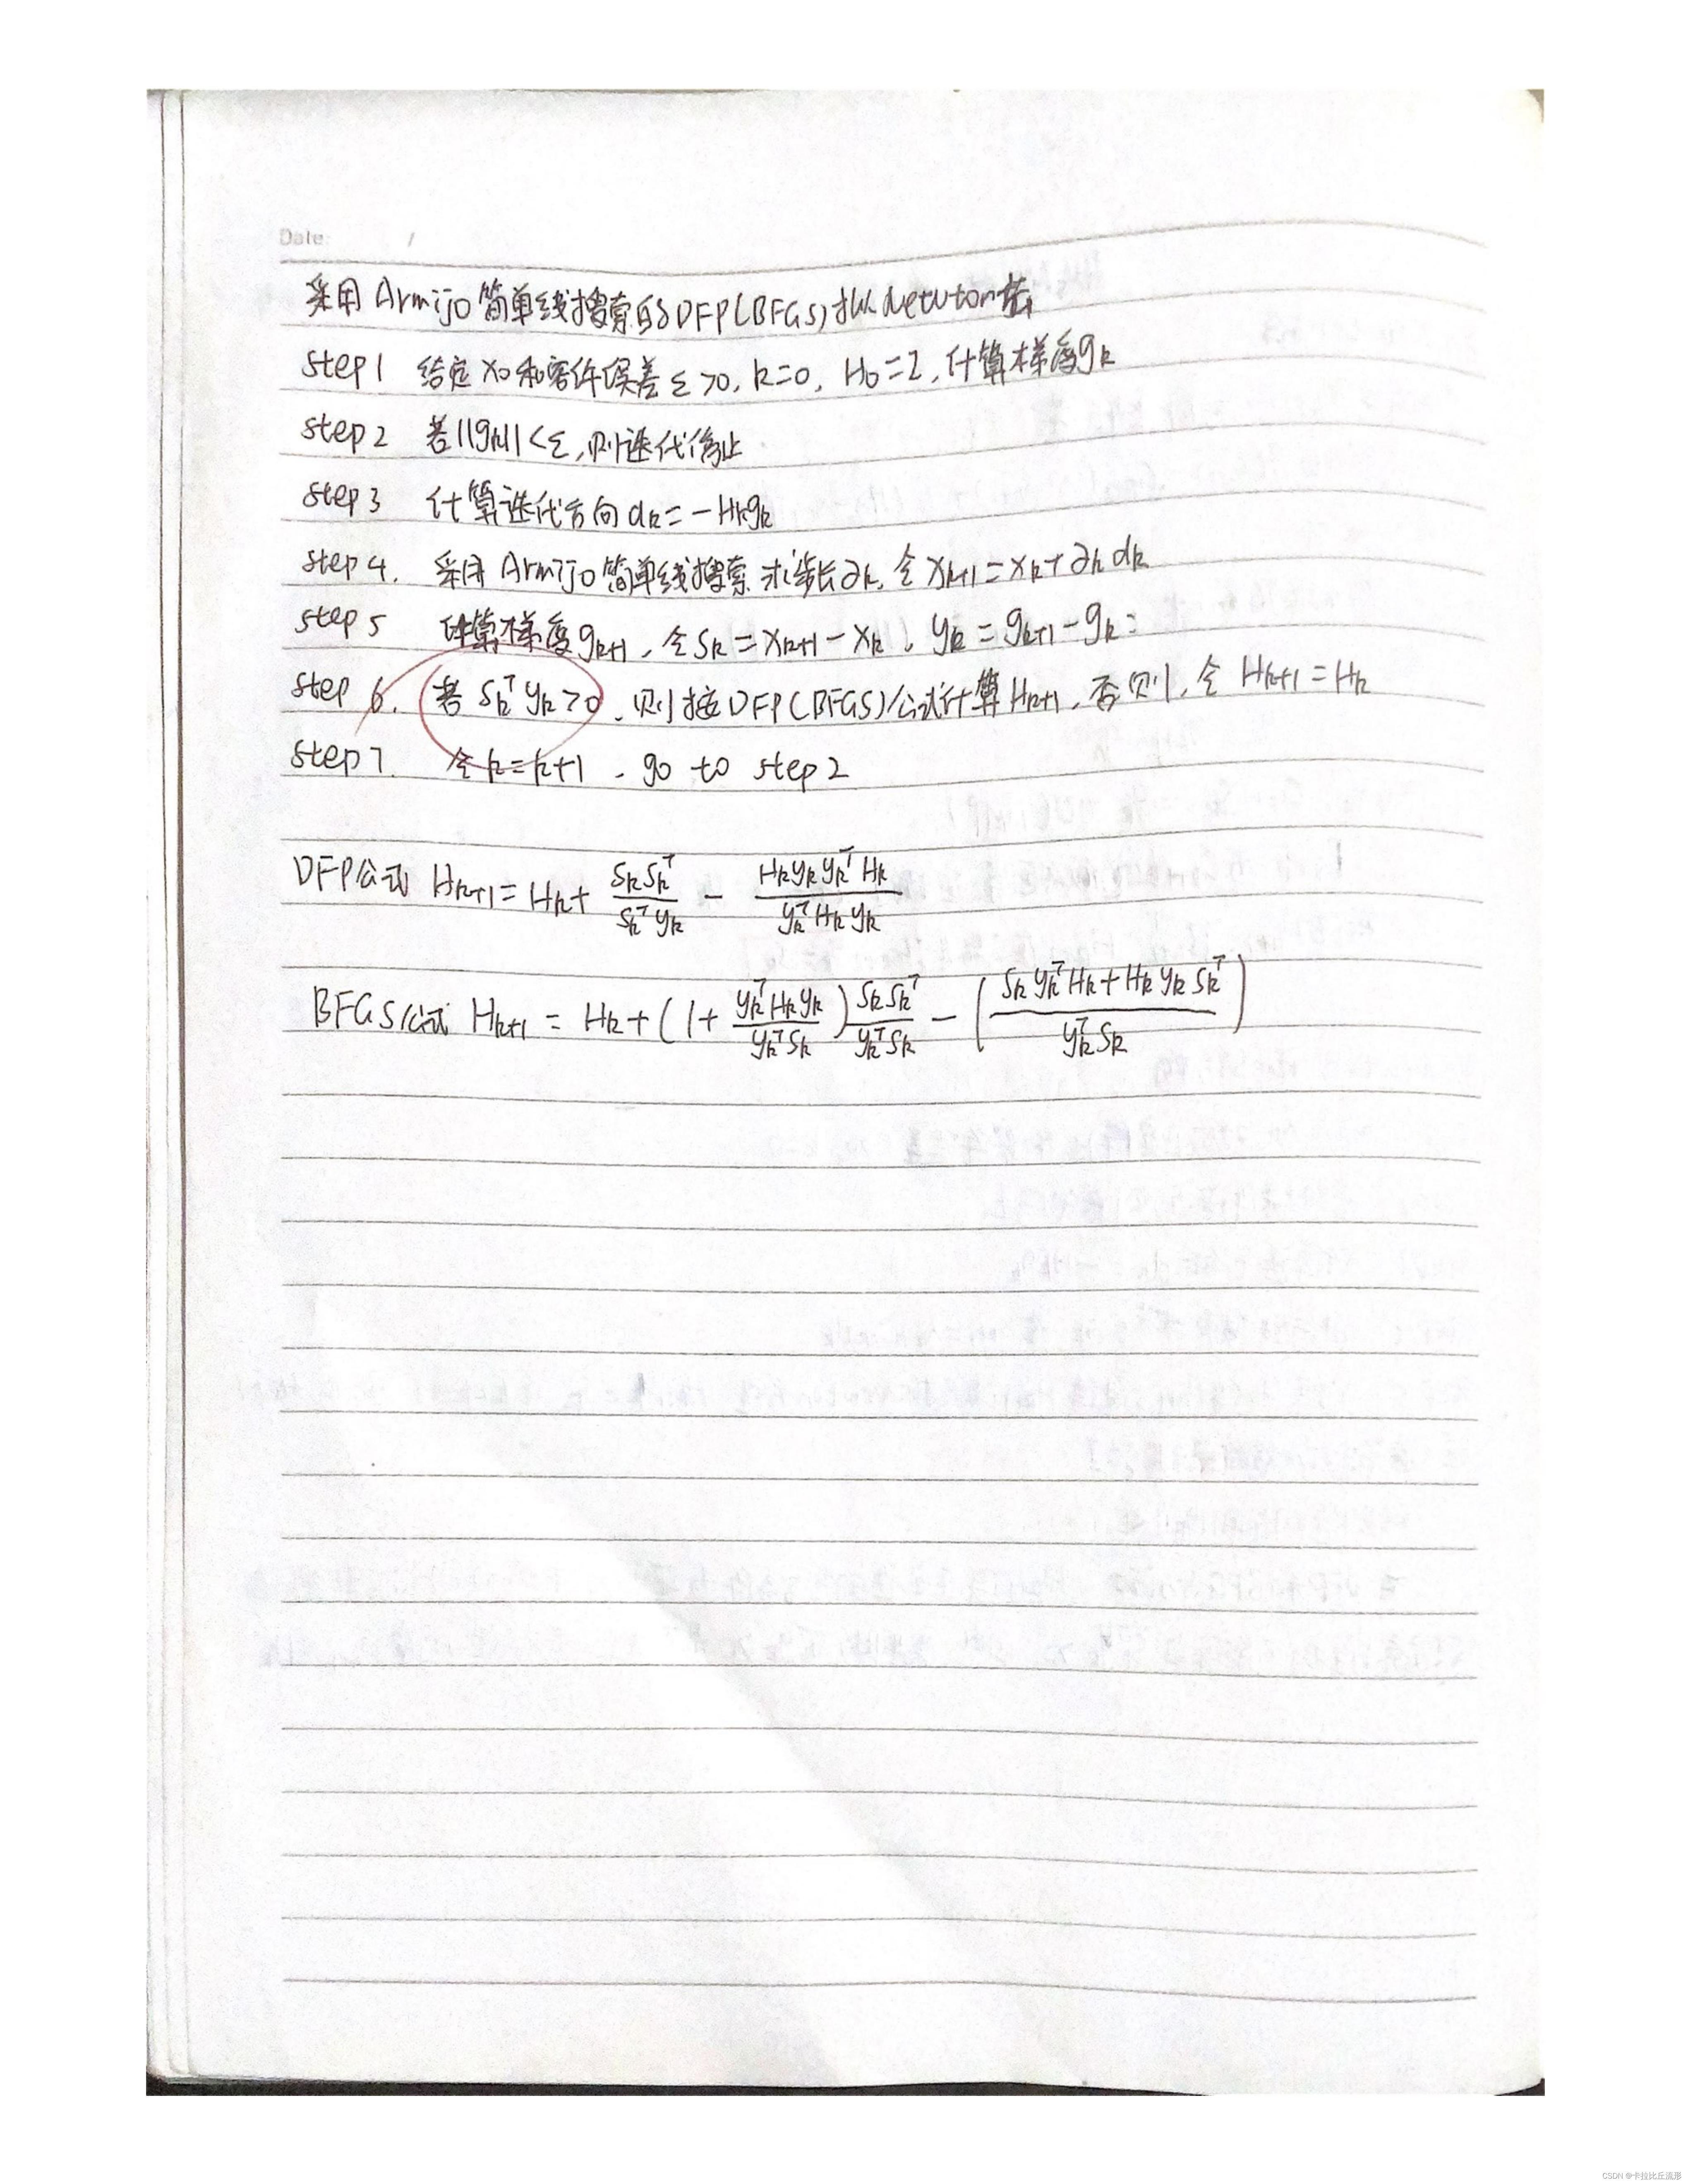 Date: /
采用Armijo简单线搜索的DFP(BFGS)拟Newton法
Step 1 给定x₀和容许误差ε>0, k=0, H₀=I, 计算梯度gₖ
Step 2 若||gₖ||<ε, 则迭代停止
Step 3 计算迭代方向dₖ=-Hₖgₖ
Step 4. 采用Armijo简单线搜索求步长∂ₖ, 令xₖ₊₁=xₖ+∂ₖdₖ
Step 5 计算梯度gₖ₊₁, 令Sₖ=xₖ₊₁-xₖ, yₖ=gₖ₊₁-gₖ:
Step 6. 若Sₖᵀyₖ>0, 则按DFP(BFGS)公式计算Hₖ₊₁, 否则, 令Hₖ₊₁=Hₖ
Step 7. 令k=k+1, go to step 2
DFP公式 Hₖ₊₁=Hₖ+ SₖSₖᵀ/Sₖᵀyₖ - HₖyₖyₖᵀHₖ/yₖᵀHₖyₖ
BFGS公式 Hₖ₊₁=Hₖ+(1+ yₖᵀHₖyₖ/yₖᵀSₖ) SₖSₖᵀ/yₖᵀSₖ - (SₖyₖᵀHₖ+HₖyₖSₖᵀ/yₖᵀSₖ)
CSDN @卡拉比丘流形